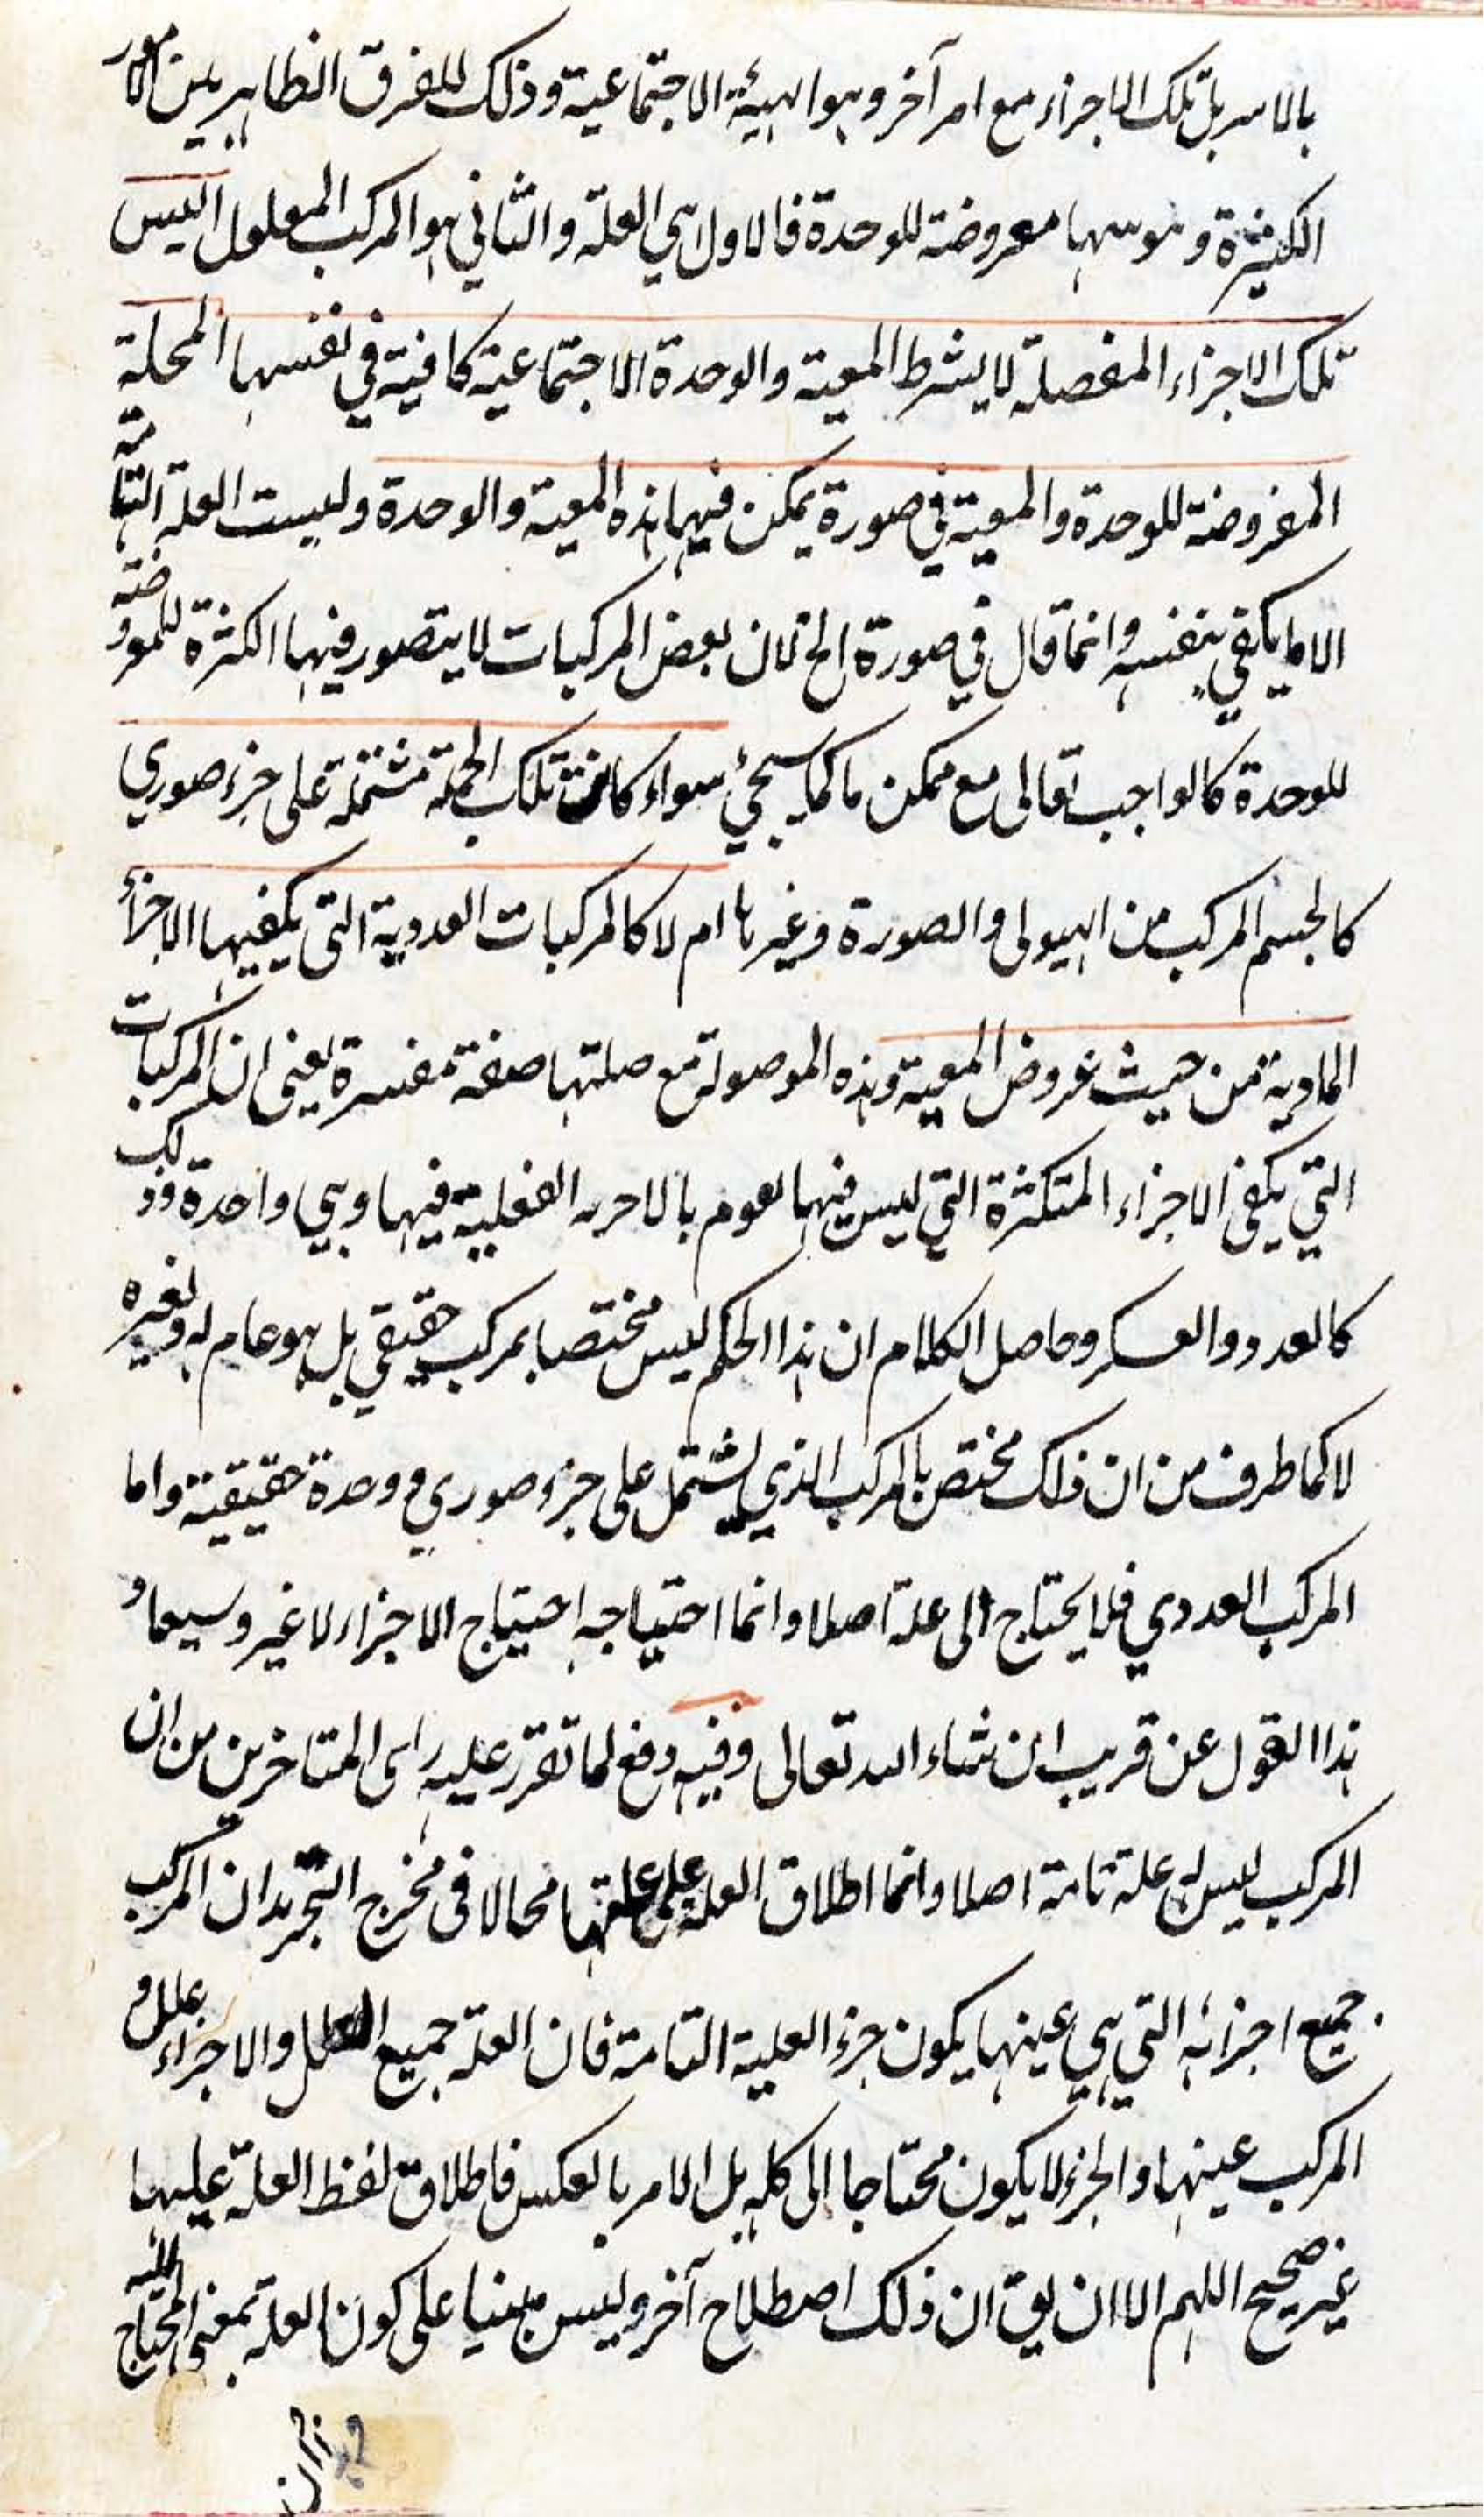 بالاسر بل تلك الاجزاء مع امر آخر وهو الهيئة الاجتماعية وذلك للفرق الظاهر بين الامور
الكثيرة و معروضة للوحدة فالاول هي العلة والثاني هو المركب المعلول اليس
تلك الاجزاء المفصلة لا بشرط المعية والوحدة الاجتماعية كافية في نفسها المحلة
المفروضة للوحدة والمعية في صورة يمكن فيها هذه المعية والوحدة وليست العلة التامة
الا ما يكفي بنفسه وانما قال في صورة الخ لان بعض المركبات لا يتصور فيها الكثرة المعروضة
للوحدة كالواجب تعالى مع ممكن ما كما سيجئ سواء كانت تلك الجملة مشتملة على جزء صوري
كالجسم المركب من الهيولى والصورة وغيرها ام لا كالمركبات العددية التي يكفيها الاجزأ
المادية من حيث عروض المعية وهذه الموصولة مع صلتها صفة مفسرة يعني ان المركبات
التي يكفي الاجزاء المتكثرة التي ليس فيها الفعلية فيها وهي واحدة وذلك
كالعدد والعسكر وحاصل الكلام ان هذا الحكم ليس مختصا بمركب حقيقي بل هو عام له ولغيره
لا كما طرف من ان ذلك مختص بالمركب الذي يشتمل على جزء صوري و وحدة حقيقية واما
المركب العددي فلا يحتاج الى علة اصلا وانما احتياجه احتياج الاجزاء لا غير وسيعاد
هذا القول عن قريب ان شاء الله تعالى وفيه دفع لما تقرر عليه راى المتاخرين من ان
المركب ليس له علة تامة اصلا وانما اطلاق العلة على علتها محالا في مخرج التجريد ان المركب
جميع اجزائه التي هي عينها يكون جزء العلية التامة فان العلة جميع العلل والاجزاء علل و
المركب عينها والجزء لا يكون محتاجا الى كله بل الامر بالعكس فاطلاق لفظ العلة عليها
غير صحيح اللهم الا ان يق ان ذلك اصطلاح آخر وليس مبنيا على كون العلة بمعنى المحتاج اليه